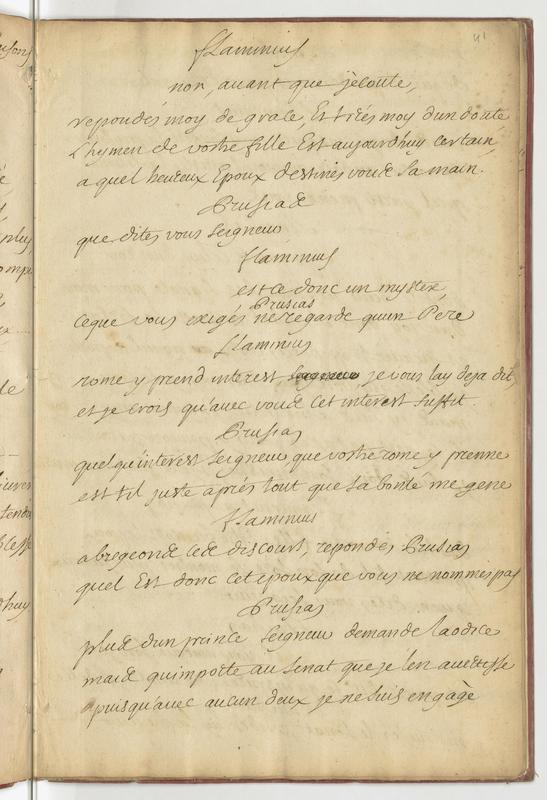 41
flaminius
non, auant que jecoute,
repondés moy de grace, Et tirés moy dun doute
Lhymen de vostre fille Est aujourdhuy certain,
a quel heureux Epoux destinés vous sa main.
Prusias
que dites vous seigneur
flaminius
est ce donc un mystere
Prusias
ceque vous exigés ne regarde quun Pére
flaminius
rome y prend interest, je vous lay deja dit,
et je crois qu'avec vous cet interest suffit.
Prusias
quelqu'interest seigneur que vostre rome y prenne
est til juste aprés tout que sa bonté me gene
flaminius
abregeons ce discours, repondés Prusias
quel Est donc cet epoux que vous ne nommes pas
Prusias
plus dun prince seigneur demande laodice
mais quimporte au senat que je len avertisse
puisqu'avec aucun deux je ne suis engagé